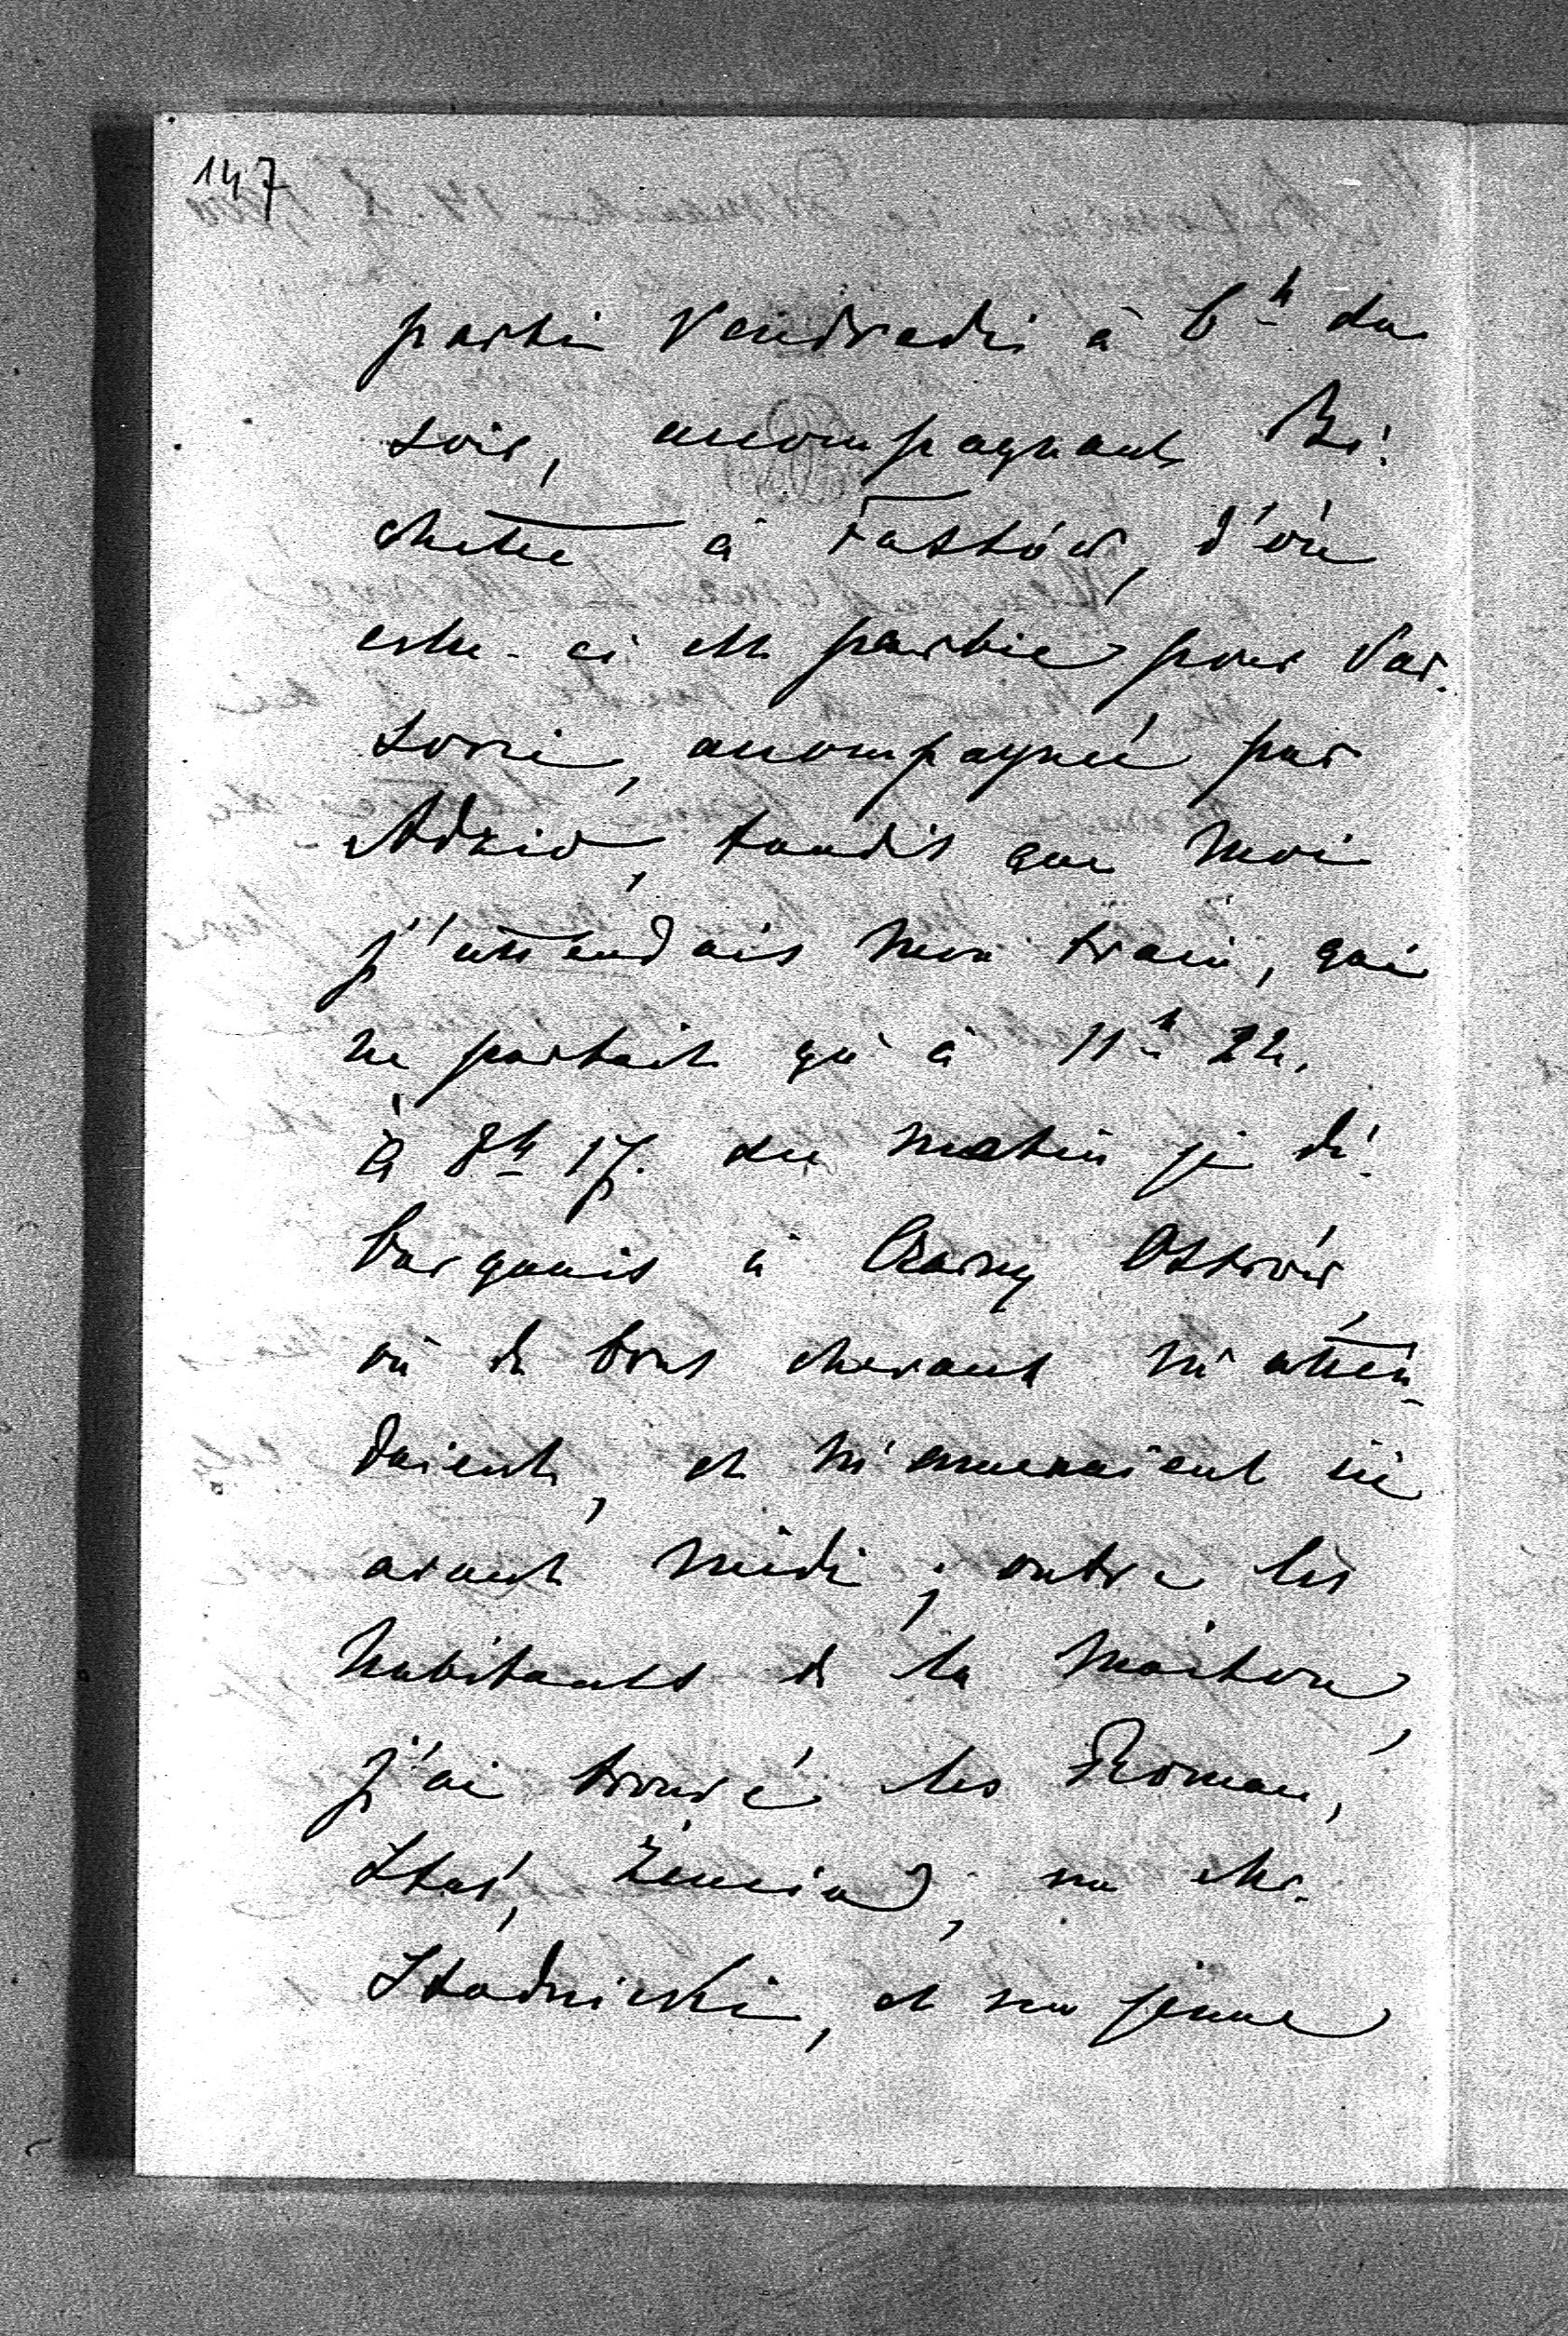 147
partie Vendredi à 6h du
soir, accompagnant Bi-
chette à Fastów, d'où
celle-ci est partie pour Var-
sovie, accompagnée par
Adzio, tandis que moi
j'attendais mon train, qui
ne partait qu'à 11h 22.
à 8h 17. du matin je dé-
barquais à Czarny Ostrów,
où de bons chevaux m'atten-
daient, et m'amenaient ici
avant midi; outre les
habitants de la maison,
j'ai trouvé les Roman,
Staś, Żencia, un Mr.
Stadnicki, et un jeune